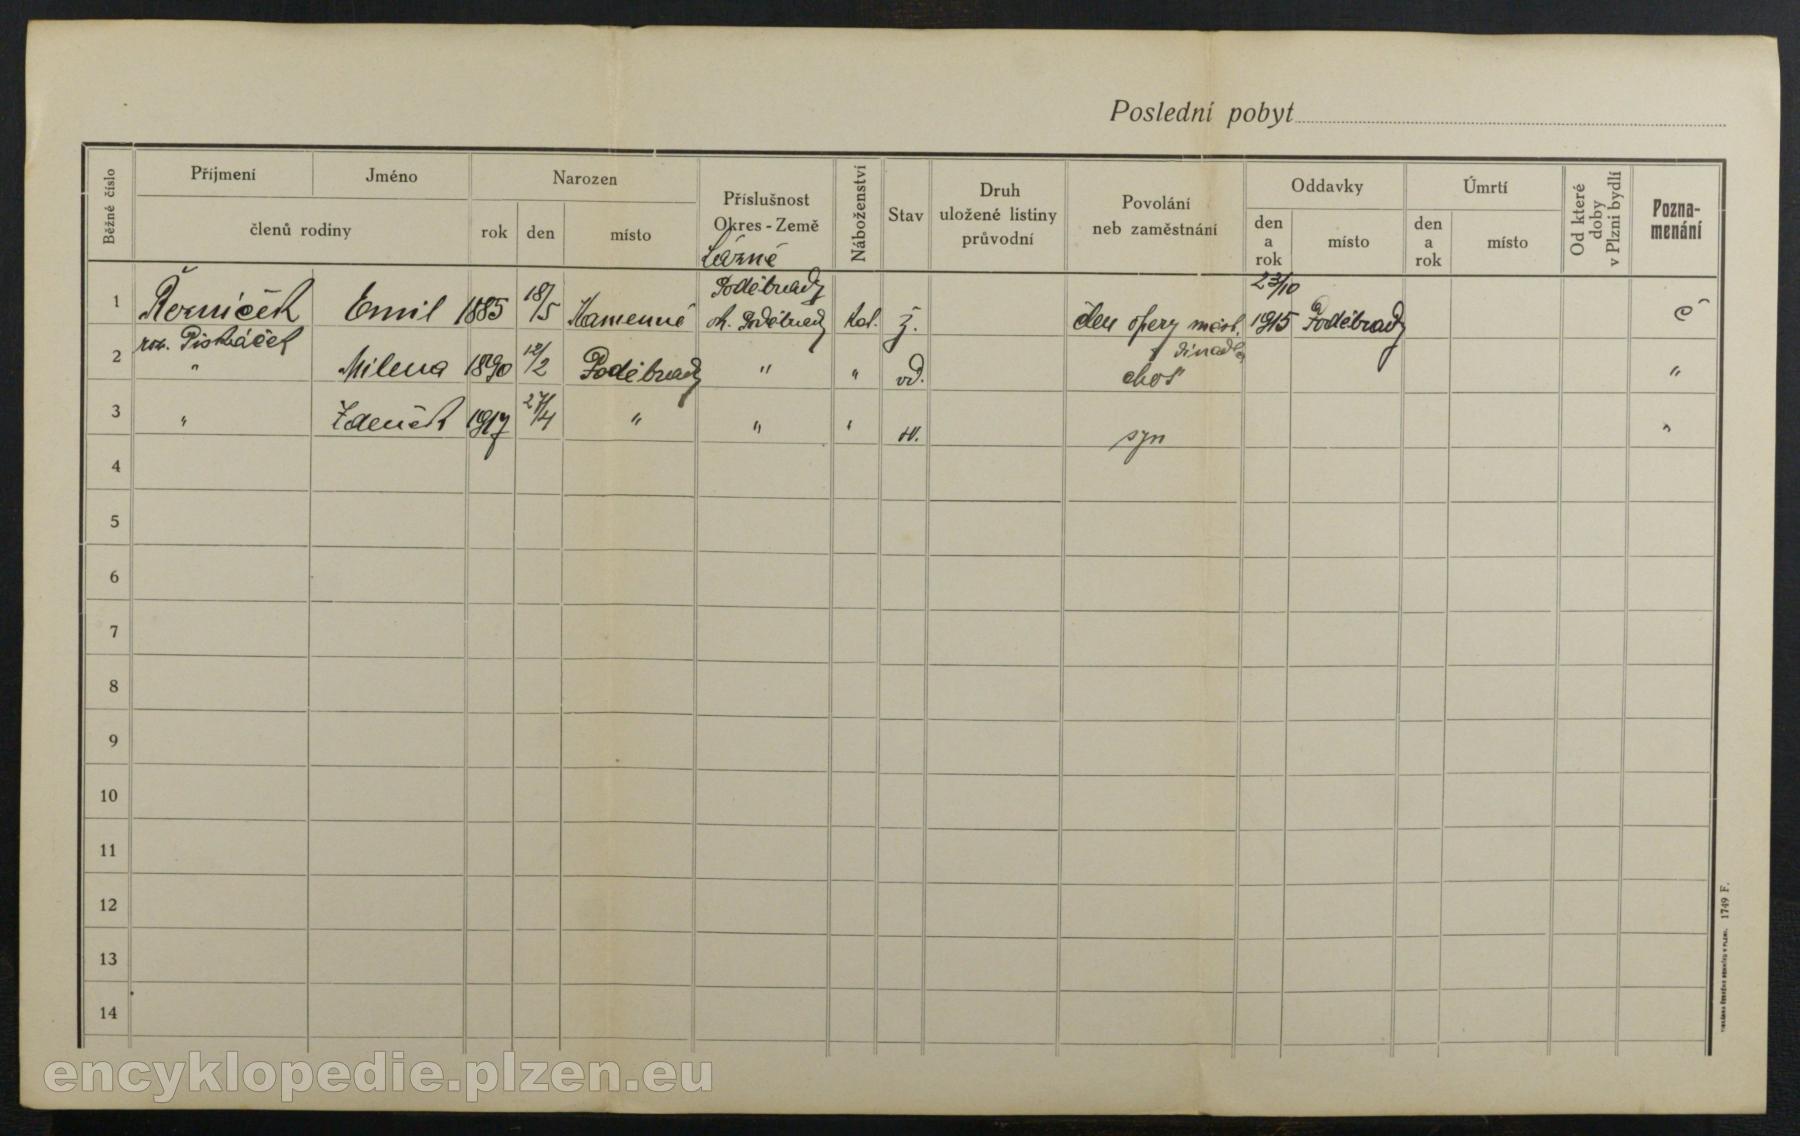 Poslední pobyt
Běžné číslo
Příjmení
Jméno
členů rodiny
Narozen
rok
den
místo
Příslušnost
Okres - Země
Náboženství
Stav
Druh
uložené listiny
průvodní
Povolání
neb zaměstnání
Oddavky
den
a
rok
místo
Úmrtí
den
a
rok
místo
Od které
doby
v Plzni bydlí
Pozna-
menání
Lázně
Poděbrady
1 Řezníček Emil 1885 18/5 Kamenné ok. Poděbrady kat. ž. člen opery měst. divadla 23/10 1915 Poděbrady č
roz. Piskáček
2 " Milena 1890 12/2 Poděbrady " " vd. choť "
3 " Zdeněk 1917 27/4 " " " sv. syn "
4
5
6
7
8
9
10
11
12
13
14
1749 F.
encyklopedie.plzen.eu